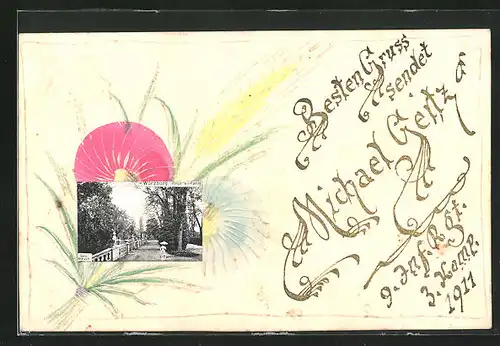 Besten Gruss
sendet
Michael Geitz
9. Inf. R.
3. Komp.
1911
Würzburg